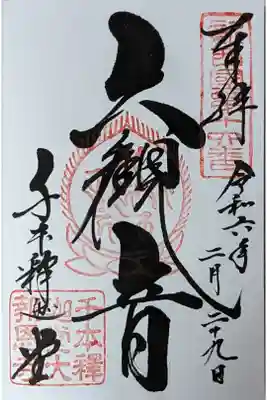 奉拝
令和六年
二月二十九日
六観音
千本釈迦堂
千本釋
迦堂大
報恩寺